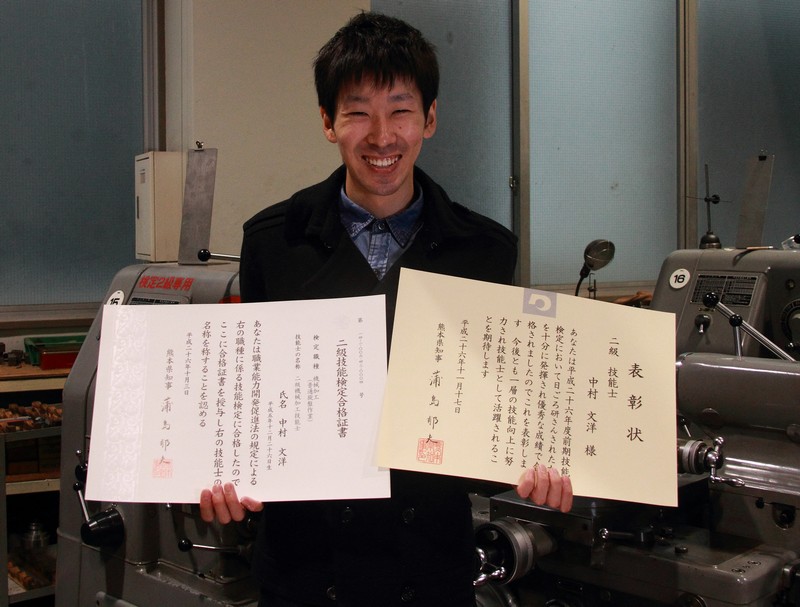 検定2級専用
15
16
二級技能検定合格証書
検定職種 機械加工
(普通旋盤作業)
技能士の名称 二級機械加工技能士
氏名 中村 文洋
平成五年十一月二十六日生
あなたは職業能力開発促進法の規定による
右の職種に係る技能検定に合格したので
ここに合格証書を授与し右の技能士の
名称を称することを認める
平成二十六年十月二日
熊本県知事 蒲島郁夫
表彰状
二級 技能士
中村 文洋 様
あなたは平成二十六年度前期技能
検定において日ごろ研さんされた
を十分に発揮され優秀な成績で合
格されましたのでこれを表彰しま
す 今後とも一層の技能向上に努
力され技能士として活躍されるこ
とを期待します
平成二十六年十一月十七日
熊本県知事 蒲島郁夫